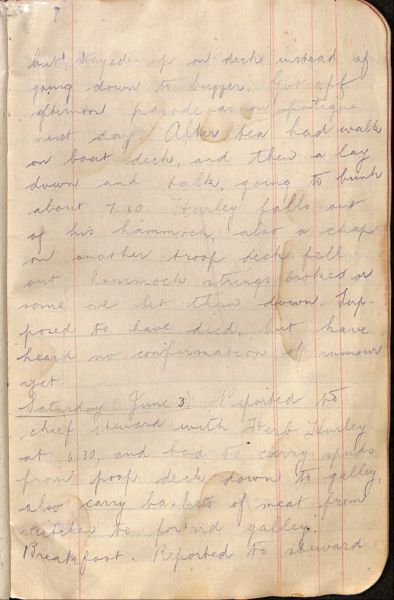 but stayed up on deck instead of
going down to bugger. Got off
afternoon parade as on fatigue
next day. After tea had walk
on boat deck, and then a lay
down and talk, going to bunk
about 7.30. Hurley falls out
of his hammock, also a chap
on another troop deck fell
out, hammock strings broke or
some one let them down. Sup-
posed to have died, but have
heard no confirmation of rumour
yet.
Saturday (June 3) Reported to
chief steward with Herb Hurley
at 6.30, and had to carry spuds
from poop deck down to galley,
also carry baskets of meat from
kitchen to forward galley.
Breakfast. Reported to steward